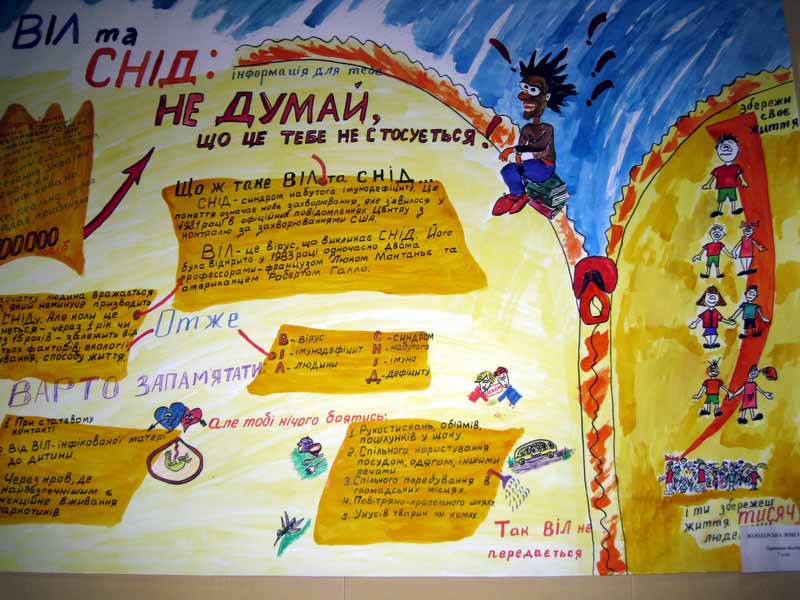 ВІЛ та
СНІД:
інформація для тебе
НЕ ДУМАЙ,
ЩО ЦЕ ТЕБЕ НЕ СТОСУЄТЬСЯ!
Що ж таке ВІЛ та СНІД...
СНІД - синдром набутого імунодефіциту. Це
поняття означає нове захворювання, яке з'явилося у
1981 році в офіційних повідомленнях Центру з
контролю за захворюваннями США.
ВІЛ - це вірус, що викликає СНІД. Його
було відкрито у 1983 році одночасно двома
професорами - французом Люком Монтаньє та
американцем Робертом Галло.
000000
людина вражається
який неминуче призводить
СНІДу. Але коли це
через 1 рік чи
15 років - залежить від
факторів: екології
способу життя.
Отже
В - вірус
І - імунодефіцит
Л - людини
С - синдром
Н - набутого
І - імуно
Д - дефіциту
ВАРТО ЗАПАМ'ЯТАТИ
1. При статевому
контакті
Від ВІЛ-інфікованої матері
до дитини.
Через кров, де
найнебезпечнішим є
вживання
наркотиків
але тобі нічого боятись:
1. Рукостискань, обіймів,
поцілунків у щоку.
2. Спільного користування
посудом, одягом, іншими
речами.
3. Спільного перебування в
громадських місцях.
4. Повітряно-крапельного шляху
5. Укусів тварин чи комах.
Так ВІЛ не
передається
збережи
своє
життя
і ти збережеш
життя тисячу
люде